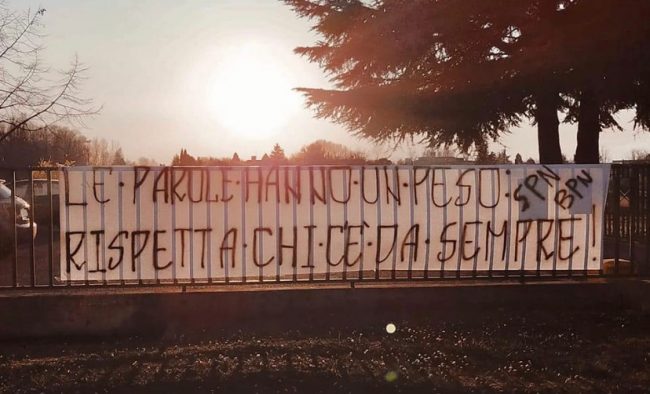 LE·PAROLE·HANNO·UN·PESO:
SPN
BPN
RISPETTA·CHI·C'È·DA·SEMPRE!